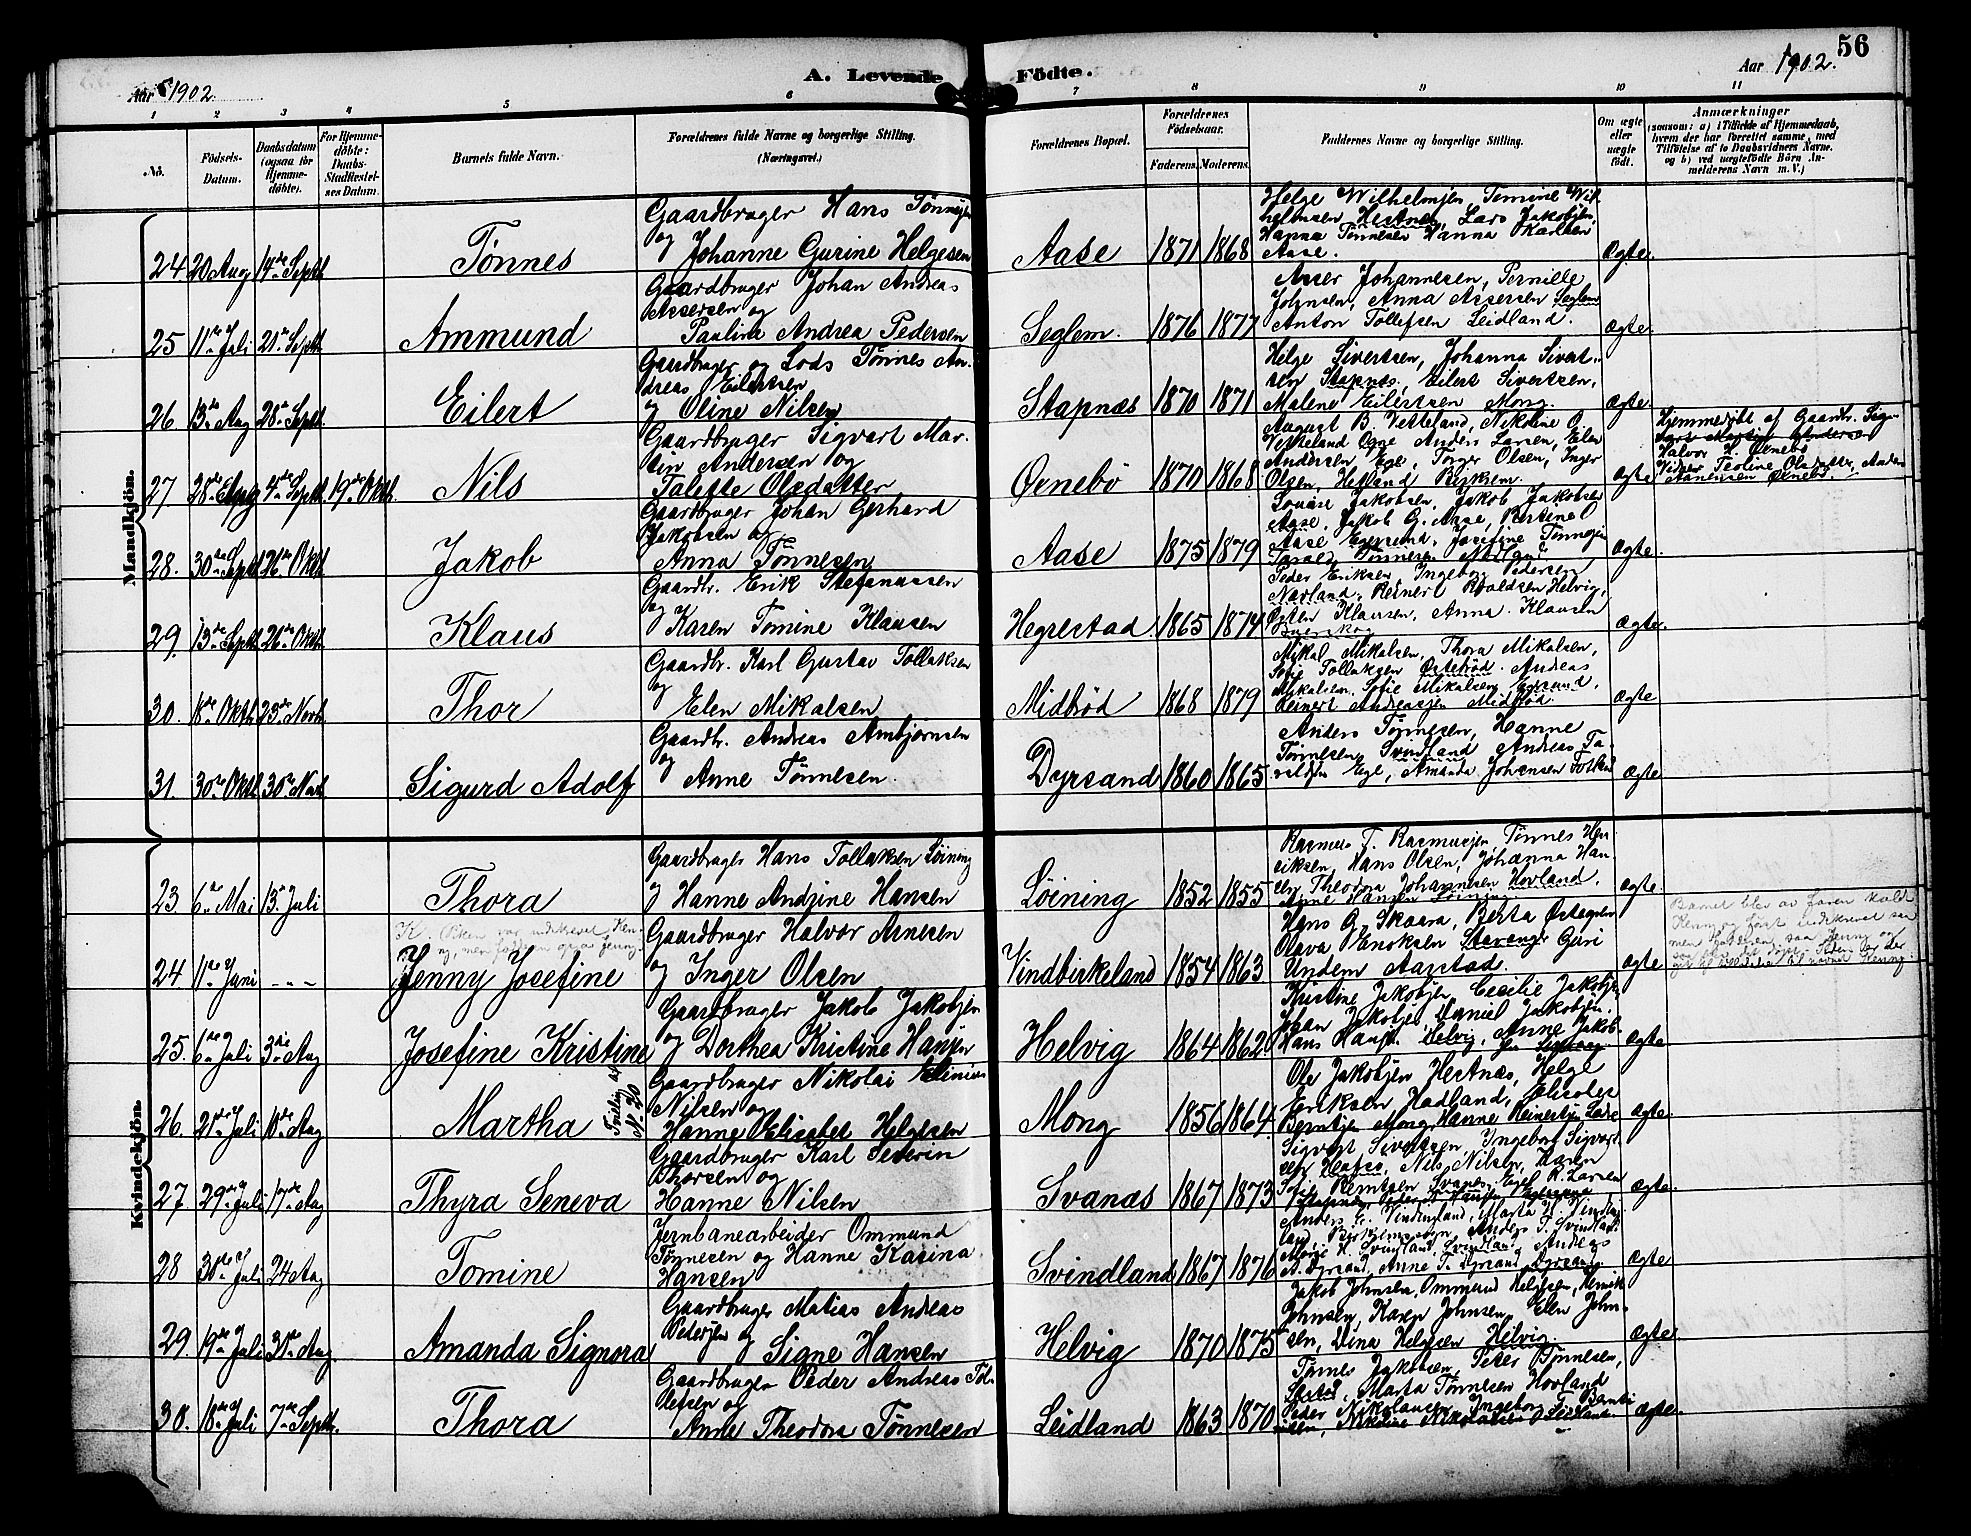 A. Levende Födte.
56
Aar 1902.
Aar 1902.
1 2 3 4 5 6 7 8 9 10 11
No.
Fødsels-Datum.
Daabsdatum (ogsaa for Hjemmedøbte).
For Hjemmedøbte: Daabs-Stadfæstelses Datum.
Barnets fulde Navn.
Forældrenes fulde Navne og borgerlige Stilling. (Næringsvei.)
Forældrenes Bopæl.
Forældrenes Fødselsaar.
Faderens. Moderens.
Faddernes Navne og borgerlige Stilling.
Om ægte eller uægte født.
Anmærkninger
(saasom: a) i Tilfælde af Hjemmedaab, hvem der har forrettet samme, med Tilføielse af to Daabsvidners Navne, og b) ved uægtefødte Børn Anmelderens Navn m. V.)
Mandkjön.
24. 20 Aug 14de Septb Tønnes
Gaardbruger Hans Tønnesen
og Johanne Gurine Helgesen
Aase 1871 1868
Helge Wilhelmsen Tomine Wil-
helmsen Hestnes, Lars Jakobsen,
Hanna Tønnesen Hanna Karlsen
Aase.
Ægte.
25 11te Juli 21de Septb Ammund
Gaardbruger Johan Andreas
Assersen og
Paulina Andrea Pedersen
Seglem. 1876 1877
Asser Johannesen, Pernille
Johnsen, Anna Assersen Seglem
Anton Tollefsen Leidland.
Ægte.
26. 13de Aug 28de Septb. Eilert
Gaardbruger og Lods Tønnes An-
dreas Eilertsen
og Oline Nilsen
Stapnæs 1870 1871
Helge Sivertsen, Johanna Sivert-
sen Stapnæs, Eilert Sivertsen,
Malene Eilertsen Mong.
Ægte.
27. 4de Septb 19de Oktb. Nils
Gaardbruger Sigvart Mar-
tin Andersen og
Talette Olsdatter
Ørnebø 1870 1868
August B. Vetteland, Nikoline O.
Vetteland Ogne Anders Larsen, Elen
Andersen Ege, Torger Olsen, Inger
Olsen, Hetland Bjerkrem.
Ægte
Hjemmedøbt af Gaardbr.
Halvor H. Ørnebø
Vidner Teoline Olsdatter, Anders
Aanensen Ørnebø.
28. 30te Septb 26de Oktb. Jakob
Gaardbruger Johan Gerhard
Jakobsen og
Anna Tønnesen
Aase 1875 1879
Louise Jakobsen, Jakob Jakobsen
Aase, Jakob G. Aase,
Aase Egersund, Josefine Tønnesen
Tønnesen Nodland
Ægte.
29. 13de Septb. 26de Oktb. Klaus
Gaardbr. Erik Stefanussen
og Karen Tomine Klausen
Hegrestad. 1865 1874
Peder Eriksen, Ingeborg Pedersen
Nærland, Reinert Roaldsen Helvig,
Østen Klausen, Anna Klausen
Ægte.
30. 18de Oktb 23de Novb Thor
Gaardbr. Karl Gustav Tollaksen
og
Elen Mikalsen
Midbrød 1868 1879
Mikal Mikalsen, Thora Mikalsen,
Sofie Tollaksen Østebrød. Andreas
Mikalsen. Sofie Mikalsen, Egersund,
Reinert Andreassen Midbrød.
Ægte
31. 30te Oktb. 30te Novb Sigurd Adolf
Gaardbr. Andreas Ambjørnsen
og
Anne Tønnesen.
Dyrsand 1860 1865
Anders Tønnesen, Hanne
Tønnesen, Svindland Andreas Ta-
raldsen Ege, Amanda Johansen
Ægte
Kvindekjön.
23. 6te Mai 13de Juli Thora
Gaardbruger Hans Tollaksen Løining
og Hanne Andrine Hansen
Løining 1852 1855
Rasmus T. Rasmussen, Tønnes Hen-
riksen, Hans Olsen, Johanna Han-
sen Theodora Johannesen Hovland,
Anne Hansen Løining.
Ægte
24 11te Juni -"- Jenny Josefine
Gaardbruger Halvor Arnesen
og Inger Olsen
Vindbirkeland 1854 1863
Hans G. Skaara, Berta Østegren
Olava Enoksen Stavanger Guri
Undem Aarstad.
Ægte
Barnet blev av faren kaldt
25. 6te Juli 3die Aug Josefine Kristine
Gaardbruger Jakob Jakobsen
og Dorthea Kristine Hansen
Helvig 1864 1862
Kristine Jakobsen, Cecilie Jakobsen
Johan Jakobsen Daniel Jakobsen.
Helvig, Anne Jakob-
Ægte
26. 21de Juli 10de Aug Martha
Tvilling af No. 20
Gaardbruger Nikolai Elinius
Nilsen og
Hanne Elisabet Helgesen
Mong 1856 1864
Ole Jakobsen Hestnæs, Helge
Eriksen Hadland, Elisabet
Berntsen Mong, Hanne Reinertsen
Ægte.
27. 29de Juli 17de Aug Thyra Seneva
Gaardbruger Karl Severin
Thorsen og
Hanne Nilsen
Svanæs 1867 1873
Sigvart Sivertsen, Ingeborg Sigvart-
sen Nils Nilsen, Karen
Sofie Berntsen Svanes,
Ægte.
28 30te Juli 24 Aug Tomine
Jernbanearbeider Ommund
Tønnesen og Hanne Karina
Hansen
Svindland 1867 1876
Anders E. Vindingland, Marta
Anders T. Svindland
H. Svindland, Svindland, Andreas
A. Dyrsand, Anne T. Dyrsand, Dyrsand
Ægte
29. 19de Juli 31te Aug. Amanda Signora
Gaardbruger Matias Andreas
Pedersen og
Signe Hansen
Helvig 1870 1875
Jakob Johnsen, Ommund Helgesen, Henrik
Johnsen, Karen Johnsen, Elen John-
sen, Dina Helgesen Helvig.
Ægte.
30. 18de Juli 7de Septb. Thora
Gaardbruger Peder Andreas Tol-
lefsen og
Anne Theodora Tønnesen
Leidland 1863 1870
Tønnes Jakobsen, Peter Tønnesen,
Marta Tønnesen Hovland
Peder Nikolausen, Ingeborg
Nikoline Nikolaisen Leidland.
Ægte.